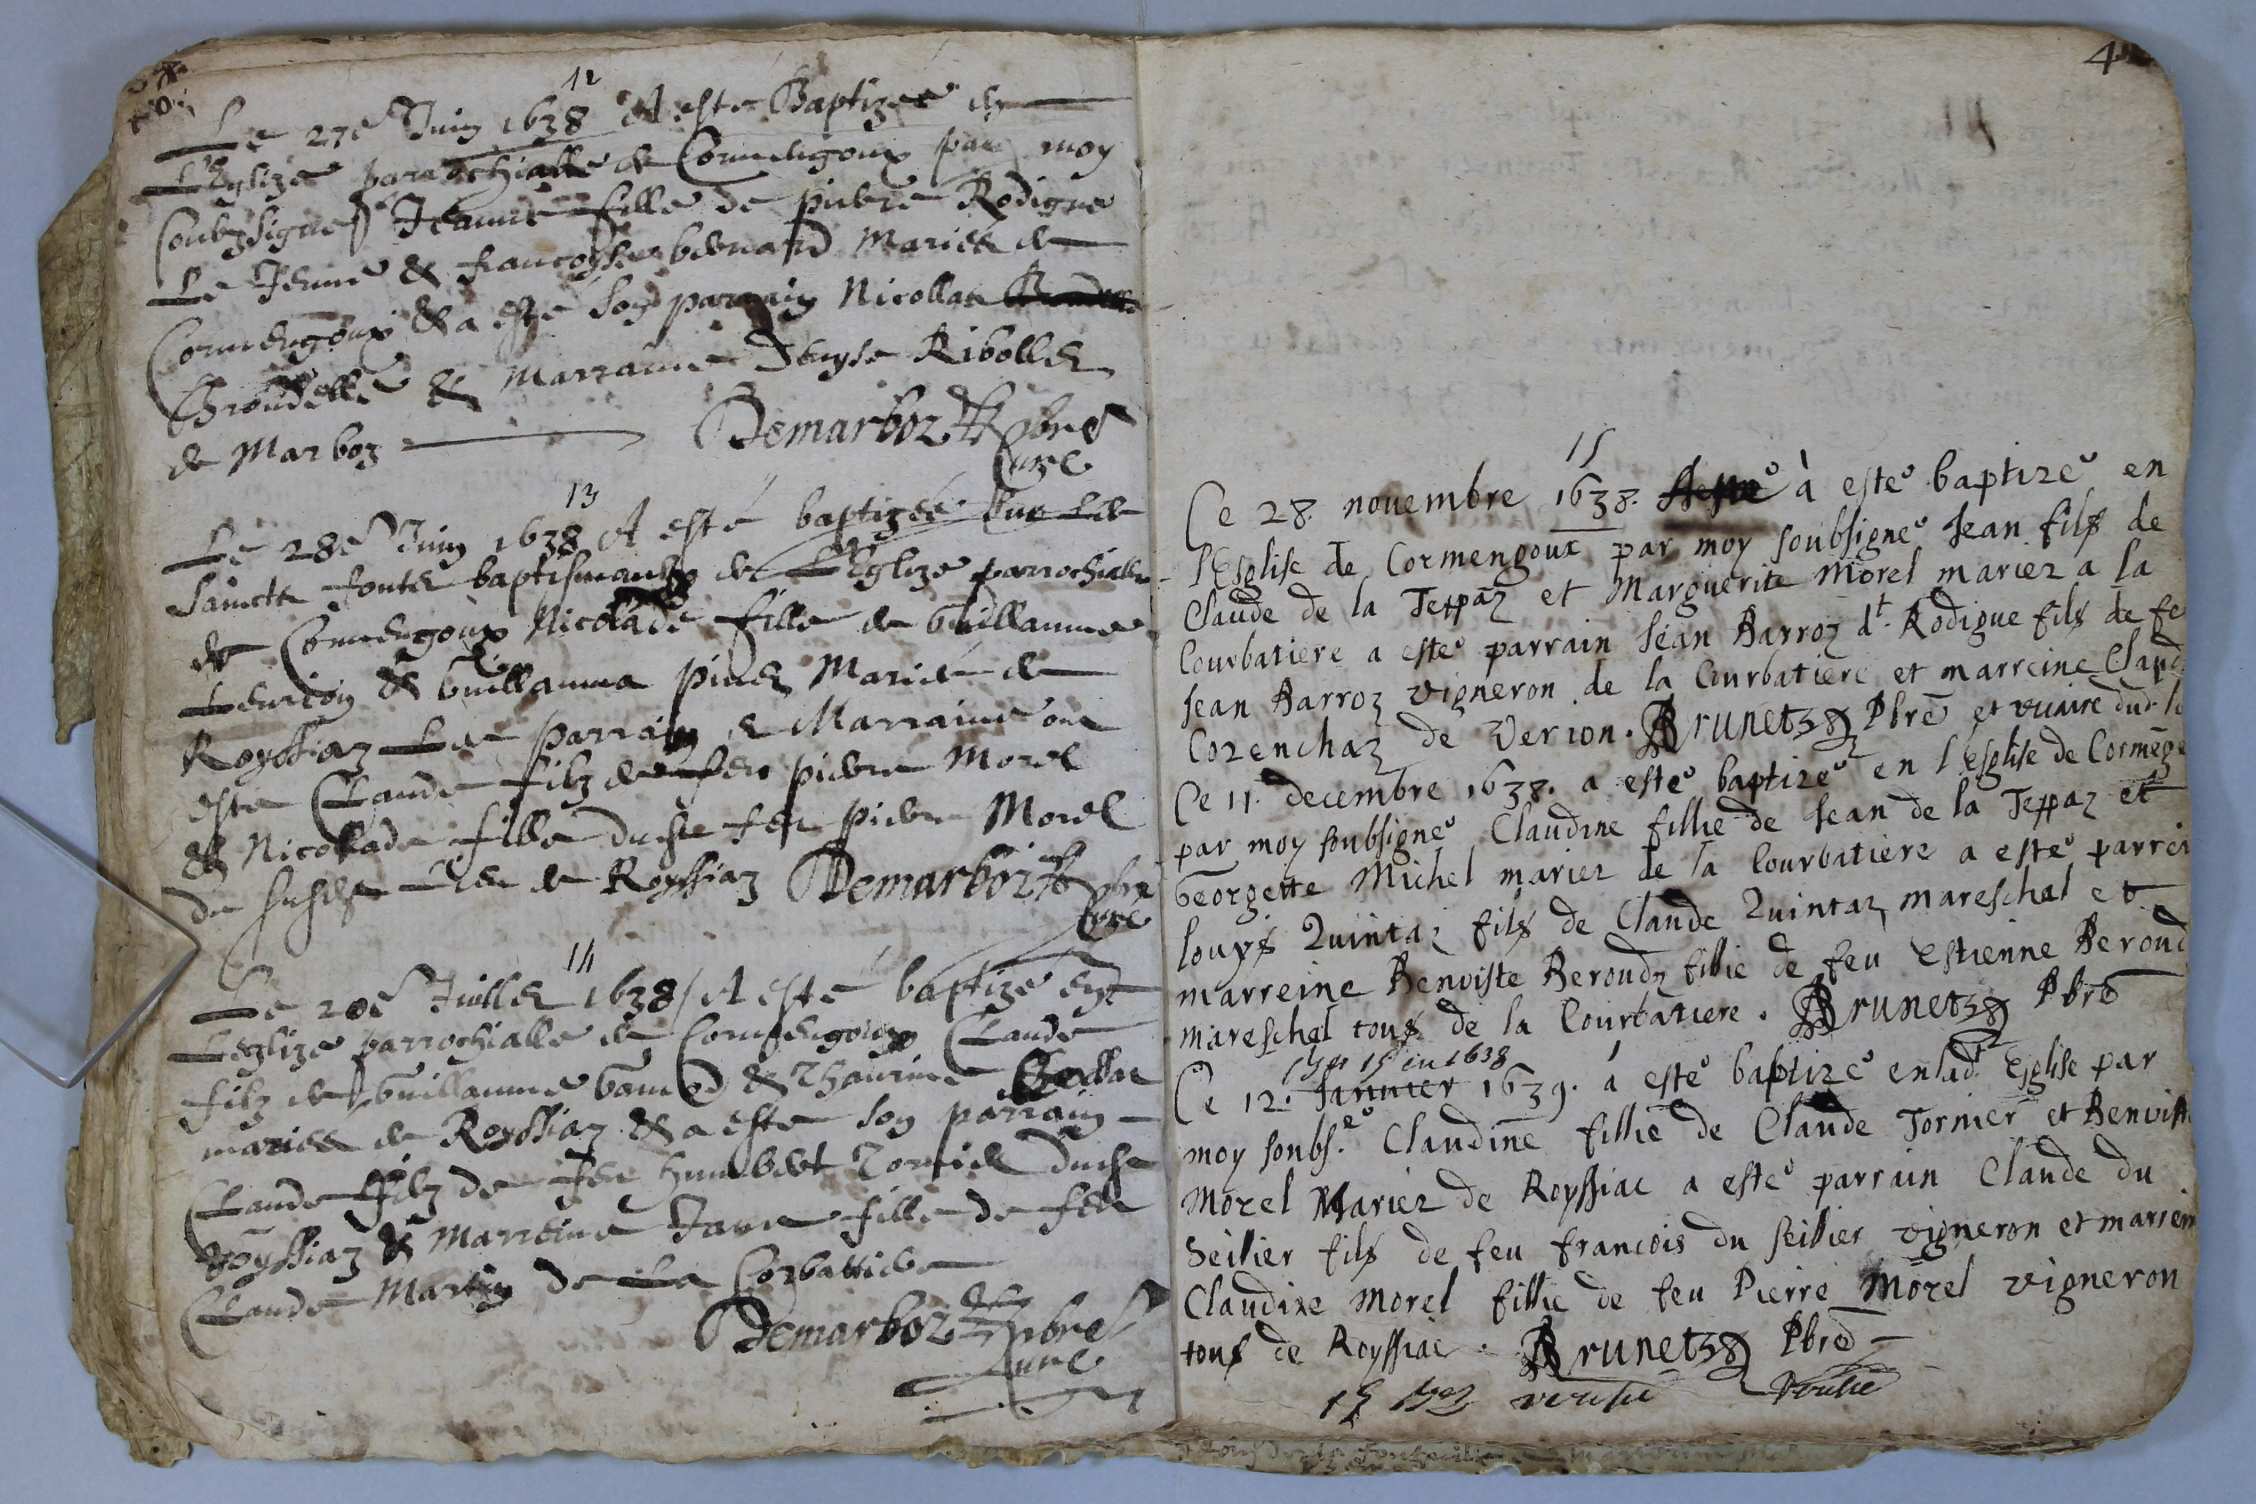 12
Le 27e Juin 1638 A este Baptizée en
L'Eglize parrochialle de Cormengoux par moy
soubzsigné Jeanne fille de pierre Rodigue
Le Jeune & francoyse bernard Mariés de
Cormengoux & a esté son parrain Nicollas
Brondelle & Marraine Denyse Ribollet
de Marboz Demarboz pbre
Curé
13
Le 28e Juin 1638 A esté baptizée sur les
saincts fonts baptismaulx de L'Eglize parrochialle
de Cormengoux Nicolade fille de Guillaume
& Guillauma Mariés de
Royssiaz Les parrain & Marraine ont
esté Claude filz de feu pierre Morel
& Nicollade fille dudit feu pierre Morel
de Royssiaz Demarboz pbre
Curé
14
Le 20e Juillet 1638 / A esté baptizé en
L'eglize parrochialle de Cormengoux Claude
filz de Guillaume & Thaurine
mariés de Royssiaz & a esté son parrain
Claude filz de feu humbert Tornier dudit
Royssiaz & Marreine Jane fille de feu
Claude Martin de La Corbattiere
Demarboz pbre
Curé
4
15
Ce 28. novembre 1638. à esté baptizé en
l'Esglise de Cormengoux par moy soubsigné Jean fils de
Claude de la Teppaz et Marguerite Morel mariez a la
Courbatiere a esté parrain Jean Barroz dt. Rodigue fils de fe
Jean Barroz vigneron de la Courbatiere et marreine Claud
Corenchaz de Verion. Brunet Pbre et vicaire dud. l
Ce 11. decembre 1638. a esté baptizé en l'Esglise de Cormeg
par moy soubsigné Claudine fillie de Jean de la Teppaz et
Georgette Michel mariez de la Courbatiere a esté parrei
louys Quintaz fils de Claude Quintaz mareschal et
marreine Benoiste Beroudz fillie de feu Estienne Beroud
mareschal tous de la Courbatiere. Brunet Pbre
1638
Ce 12. Januier 1639. à esté baptizé en lad.t Esglise par
moy soubs.é Claudine fillie de Claude Tornier et Benoiste
Morel Mariez de Royssiac a esté parrain Claude du
Seilier fils de feu francois du seilier vigneron et marrein
Claudine Morel fillie de feu Pierre Morel vigneron
tous de Royssiac. Brunet Pbre